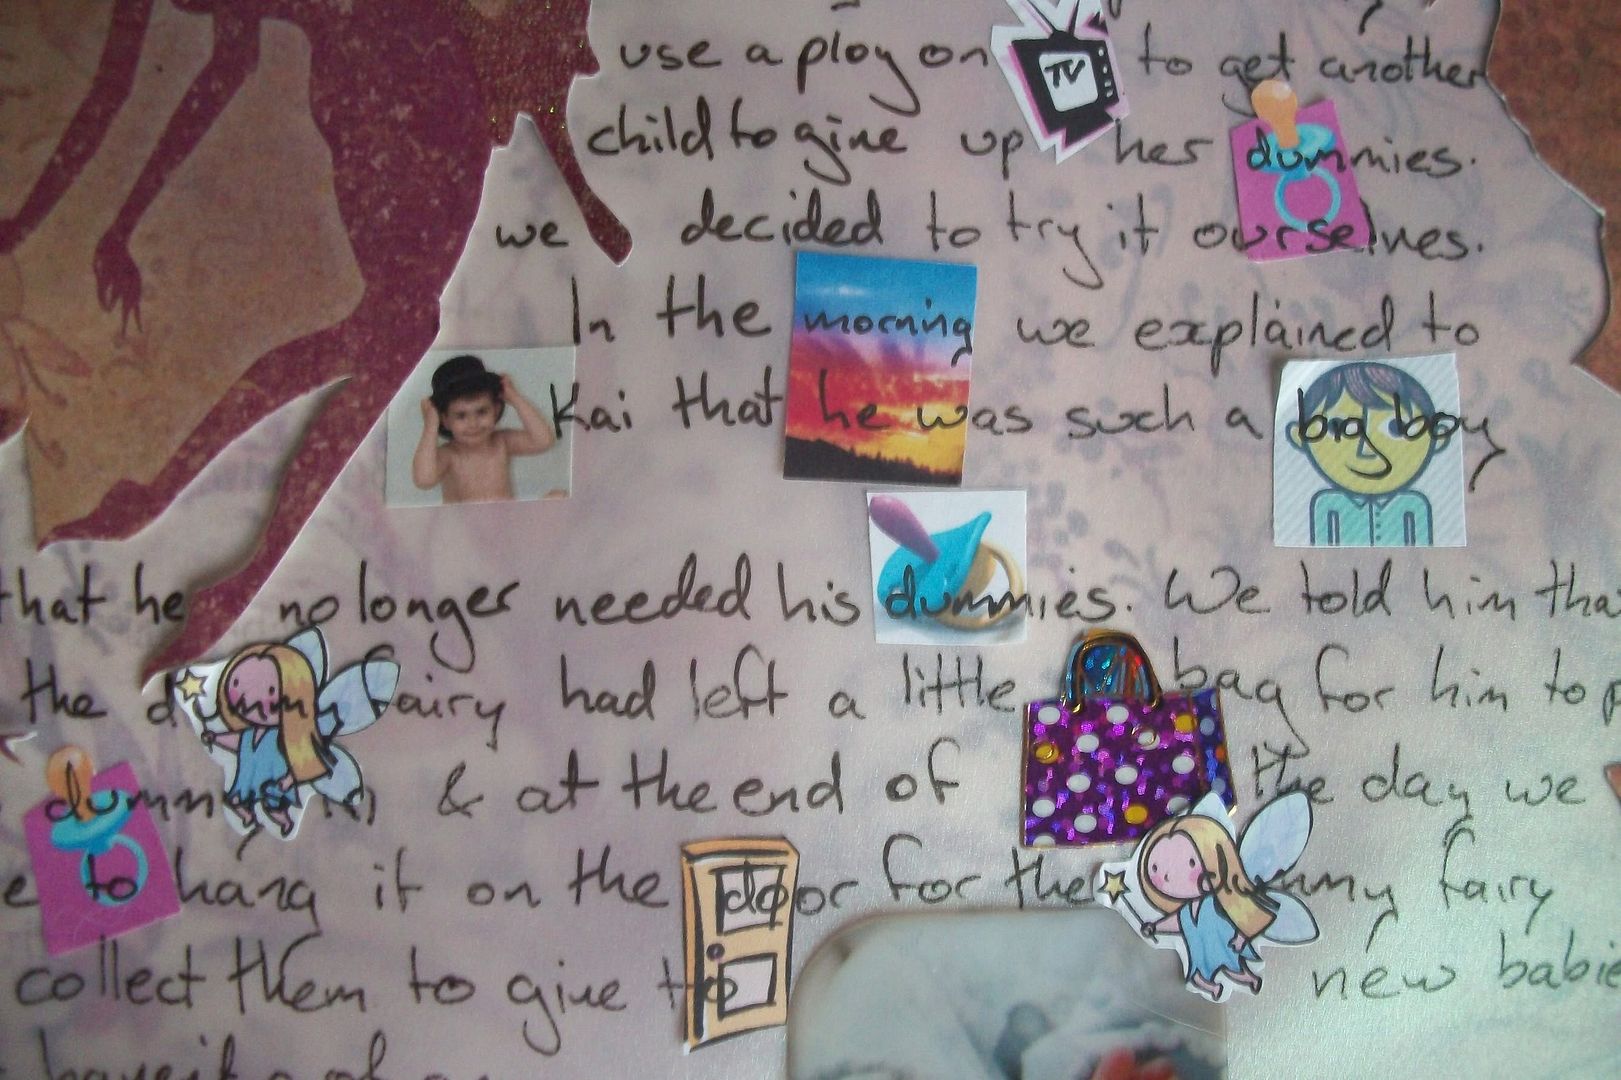 use a ploy on TV to get another
child to give up her dummies.
we decided to try it ourselves.
In the morning we explained to
Kai that he was such a big boy
that he no longer needed his dummies. We told him tha
the dummy fairy had left a little bag for him to p
dummies in & at the end of the day we
e to hang it on the door for the dummy fairy
collect them to give to new babie